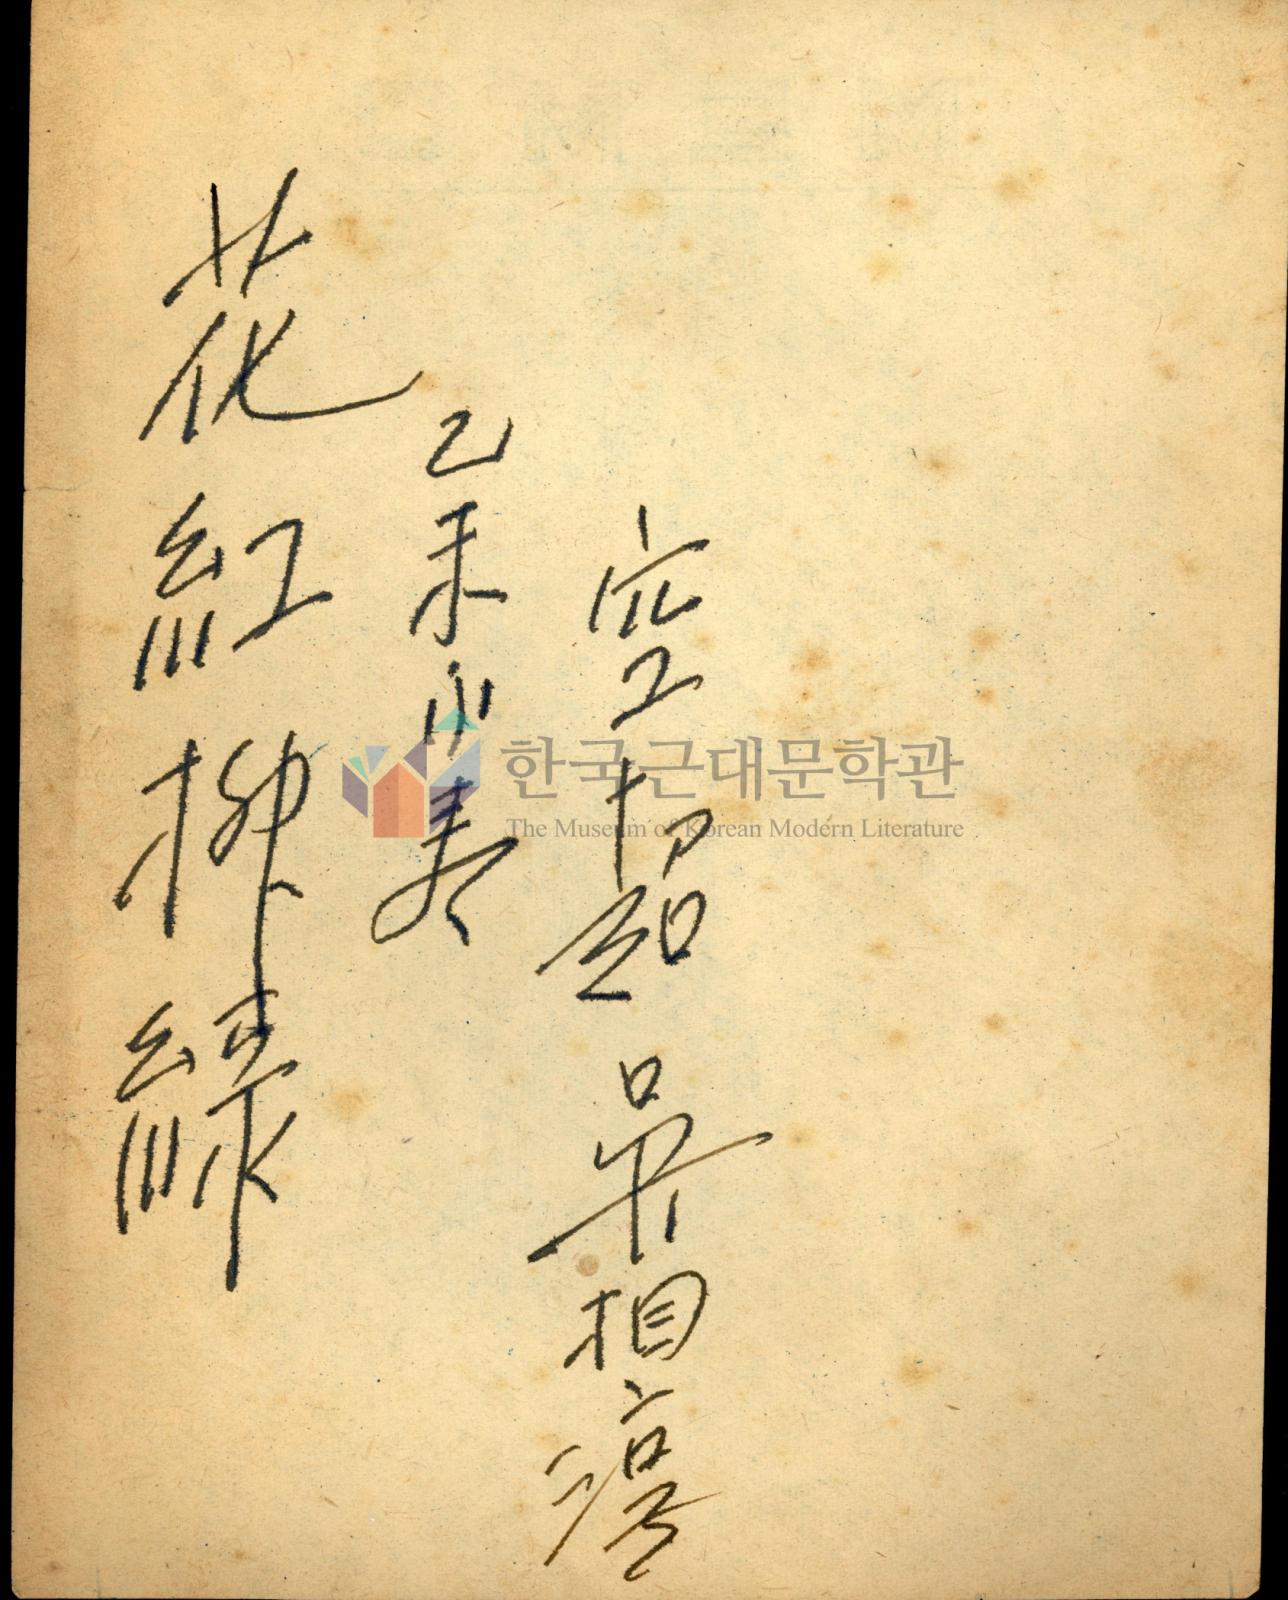 花紅柳綠
乙未小春
空超 吳相淳
한국근대문학관
The Museum of Korean Modern Literature